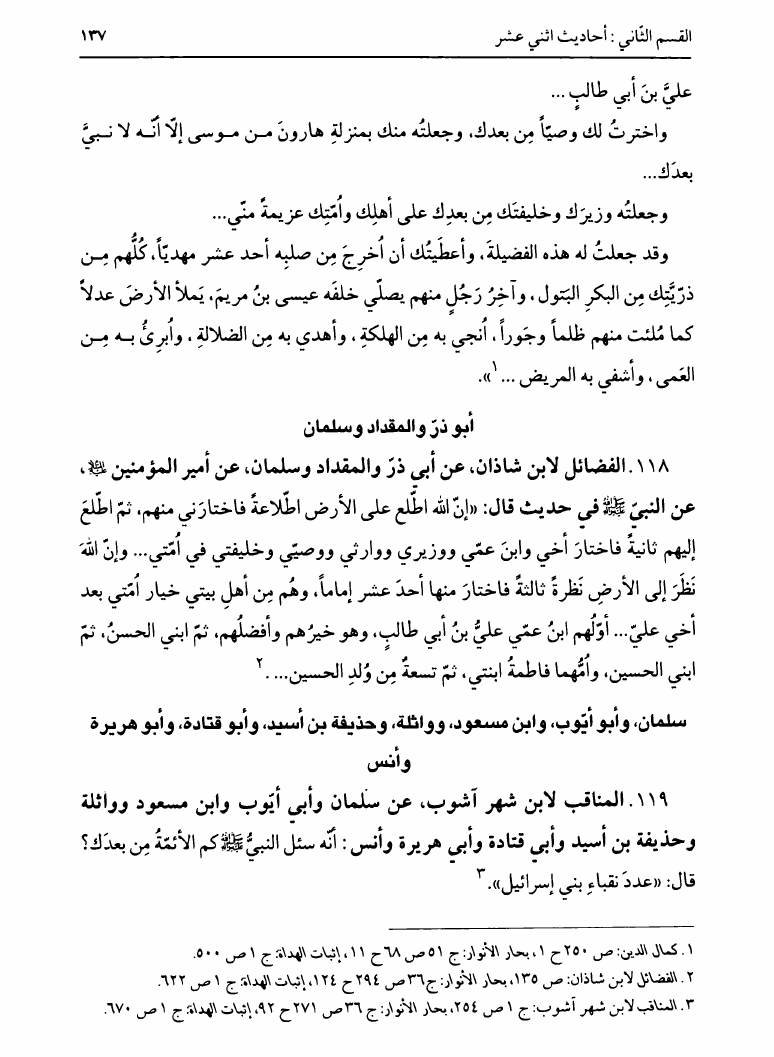 القسم الثّاني : أحاديث اثني عشر ١٣٧
عليَّ بنَ أبي طالبٍ ...
واخترتُ لك وصيّاً مِن بعدك، وجعلتُه منك بمنزلةِ هارونَ مـن مـوسى إلّا أنّـه لا نـبيَّ
بعدَك...
وجعلته وزيرَك وخليفتَك مِن بعدِك على أهلِك واُمّتِك عزيمةً منّي...
وقد جعلتُ له هذه الفضيلةَ، وأعطَيتُك أن اُخرِجَ مِن صلبِه أحد عشر مهديّاً، كُلُّهم مِـن
ذرّيَّتِك مِن البكرِ البَتول، وآخِرُ رَجُلٍ منهم يصلّي خلفَه عيسى بنُ مريمَ، يَملأ الأرضَ عدلاً
كما مُلئت منهم ظلماً وجَوراً، اُنجي به مِن الهلكةِ، وأهدي به مِن الضلالةِ، واُبرِئُ بـه مِـن
العَمى، وأشفي به المريض ...١».
أبو ذرّ والمقداد وسلمان
١١٨. الفضائل لابن شاذان، عن أبي ذرّ والمقداد وسلمان، عن أمير المؤمنين ﷺ،
عن النبيّ ﷺ في حديث قال: «إنّ الله اطّلع على الأرض اطّلاعةً فاختارَني منهم، ثمّ اطّلعَ
إليهم ثانيةً فاختارَ أخي وابنَ عمّي ووزيري ووارثي ووصيّي وخليفتي في اُمّتي... وإنّ اللهَ
نَظَرَ إلى الأرضِ نَظرةً ثالثةً فاختارَ منها أحدَ عشر إماماً، وهُم مِن أهلِ بيتي خيار اُمّتي بعد
أخي عليّ... أوّلُهم ابنُ عمّي عليُّ بنُ أبي طالبٍ، وهو خيرُهم وأفضلُهم، ثمّ ابني الحسنُ، ثمّ
ابني الحسين، واُمُّهما فاطمةُ ابنتي، ثمّ تسعةٌ مِن وُلدِ الحسين... .٢
سلمان، وأبو أيّوب، وابن مسعود، وواثلة، وحذيفة بن أسيد، وأبو قتادة، وأبو هريرة
وأنس
١١٩. المناقب لابن شهر آشوب، عن سلمان وأبي أيّوب وابن مسعود وواثلة
وحذيفة بن أسيد وأبي قتادة وأبي هريرة وأنس: أنّه سئل النبيُّ ﷺ كم الأئمّةُ مِن بعدَك؟
قال: «عددَ نقباءِ بني إسرائيل».٣
١. كمال الدين: ص ٢٥٠ ح ١، بحار الأنوار: ج ٥١ ص ٦٨ ح ١١، إثبات الهداة: ج ١ ص ٥٠٠.
٢. الفضائل لابن شاذان: ص ١٣٥، بحار الأنوار: ج ٣٦ ص ٢٩٤ ح ١٢٤، إثبات الهداة: ج ١ ص ٦٢٢.
٣. المناقب لابن شهر آشوب: ج ١ ص ٢٥٤، بحار الأنوار: ج ٣٦ ص ٢٧١ ح ٩٢، إثبات الهداة: ج ١ ص ٦٧٠.